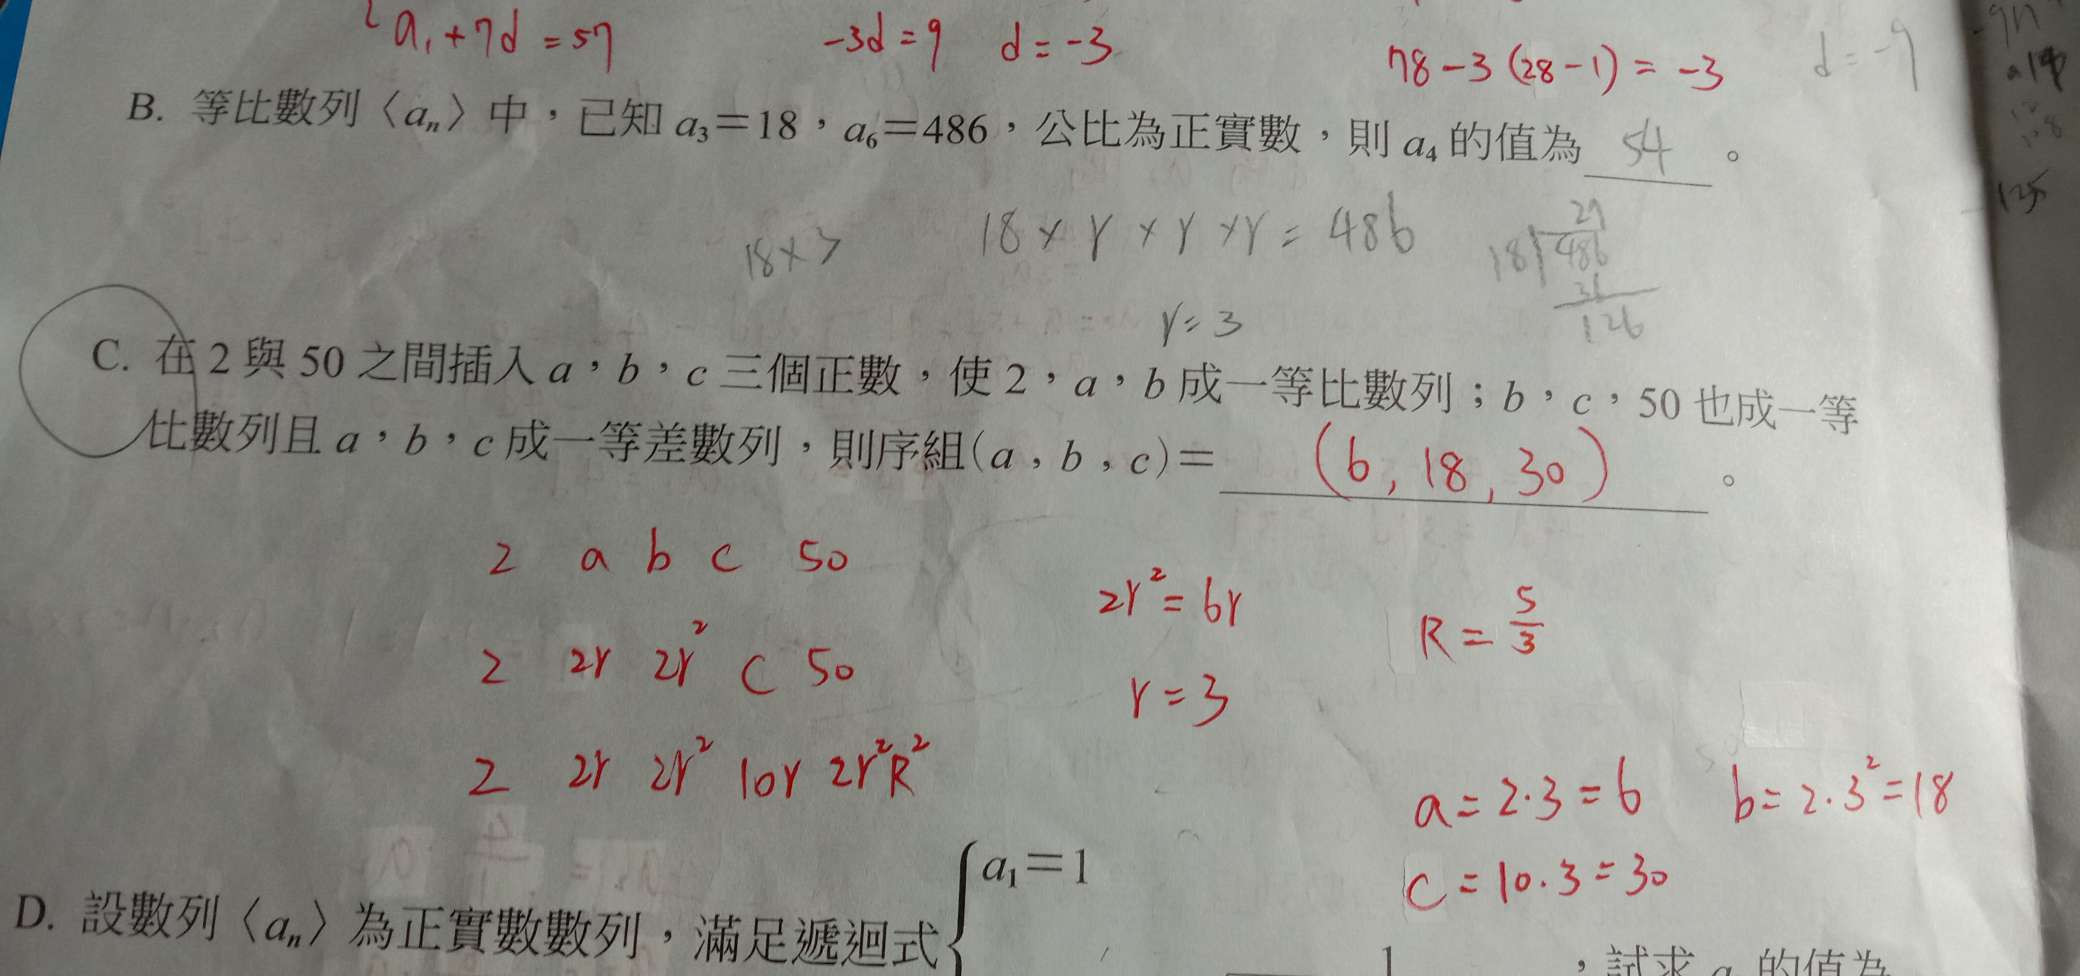 a₁+7d=57 -3d=9 d=-3 78-3(28-1)=-3 d=-9
B. 等比數列〈aₙ〉中，已知 a₃＝18，a₆＝486，公比為正實數，則 a₄ 的值為 54 。
18×3 18×r×r×r=486 18 486 27
36
126
r=3
C. 在 2 與 50 之間插入 a，b，c 三個正數，使 2，a，b 成一等比數列；b，c，50 也成一等
比數列且 a，b，c 成一等差數列，則序組(a，b，c)＝ (6, 18, 30) 。
2 a b c 50
2r²=6r R=5/3
2 2r 2r² c 50
r=3
2 2r 2r² 10r 2r²R²
a=2·3=6 b=2·3²=18
c=10·3=30
D. 設數列〈aₙ〉為正實數數列，滿足遞迴式 { a₁＝1
1 ，試求 a 的值為